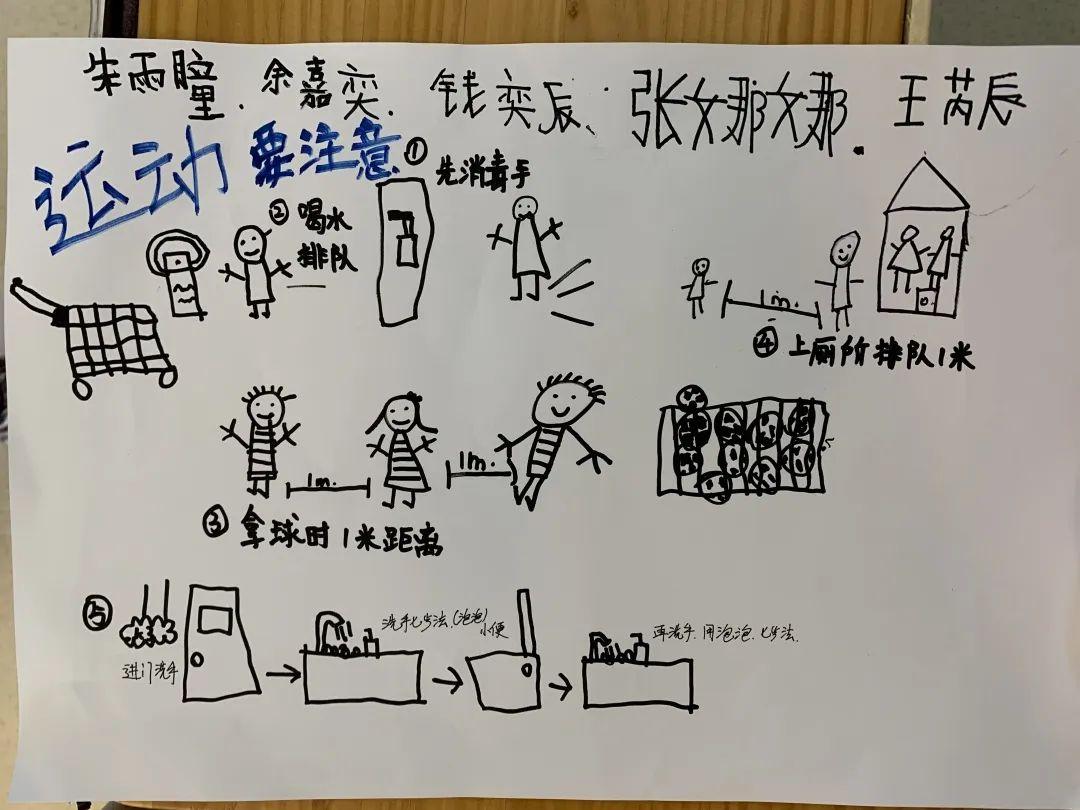 朱雨瞳、余嘉奕、钱奕辰、张娜娜、王芮辰
运动要注意
① 先消毒手
② 喝水
排队
1m.
④ 上厕所排队1米
1m.
1m.
③ 拿球时1米距离
⑤
进门洗手
洗手七步法.(泡泡)
小便
再洗手.用泡泡.七步法.